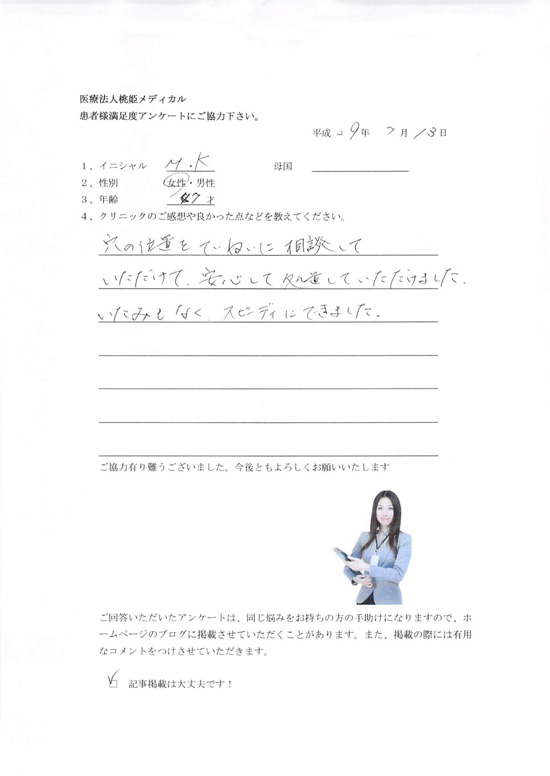 医療法人桃姫メディカル
患者様満足度アンケートにご協力下さい。
平成 29年 7月 13日
1、イニシャル M・K 母国
2、性別 女性・男性
3、年齢 47才
4、クリニックのご感想や良かった点などを教えてください。
穴の位置をていねいに相談して
いただけて、安心して処置していただけました。
いたみもなく、スピーディにできました。
ご協力有り難うございました。今後ともよろしくお願いいたします
ご回答いただいたアンケートは、同じ悩みをお持ちの方の手助けになりますので、ホ
ームページのブログに掲載させていただくことがあります。また、掲載の際には有用
なコメントをつけさせていただきます。
記事掲載は大丈夫です！